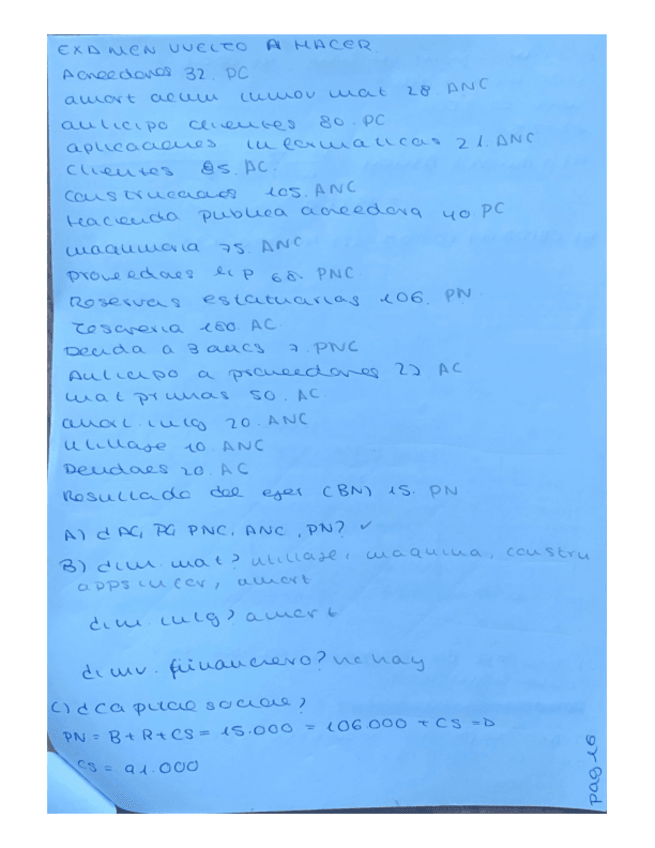 EXAMEN VUELTO A HACER.
Acreedores 32. PC
amort acum inmov mat 28. ANC
anticipo clientes 80. PC
aplicaciones informaticas 21. ANC
clientes 85. AC.
construcciones 105. ANC
Hacienda publica acreedora 40 PC
maquinaria 75. ANC
proveedores l/p 68. PNC
Reservas estatuarias 106. PN
Tesoreria 100. AC.
Deuda a 3 años 7. PNC
Anticipo a proveedores 27 AC
mat primas 50. AC.
amort. intg 20. ANC
utillaje 10. ANC
Deudores 20. AC
Resultado del ejer (BN) 15. PN
A) d AC, PC, PNC, ANC, PN? ✓
B) d inm. mat? utillaje, maquina, constru
apps infor, amort
d inm. intg? amort
d inmv. financiero? no hay
C) d capital social?
PN = B + R + CS = 15.000 = 106.000 + CS =D
CS = 91.000
pag 16